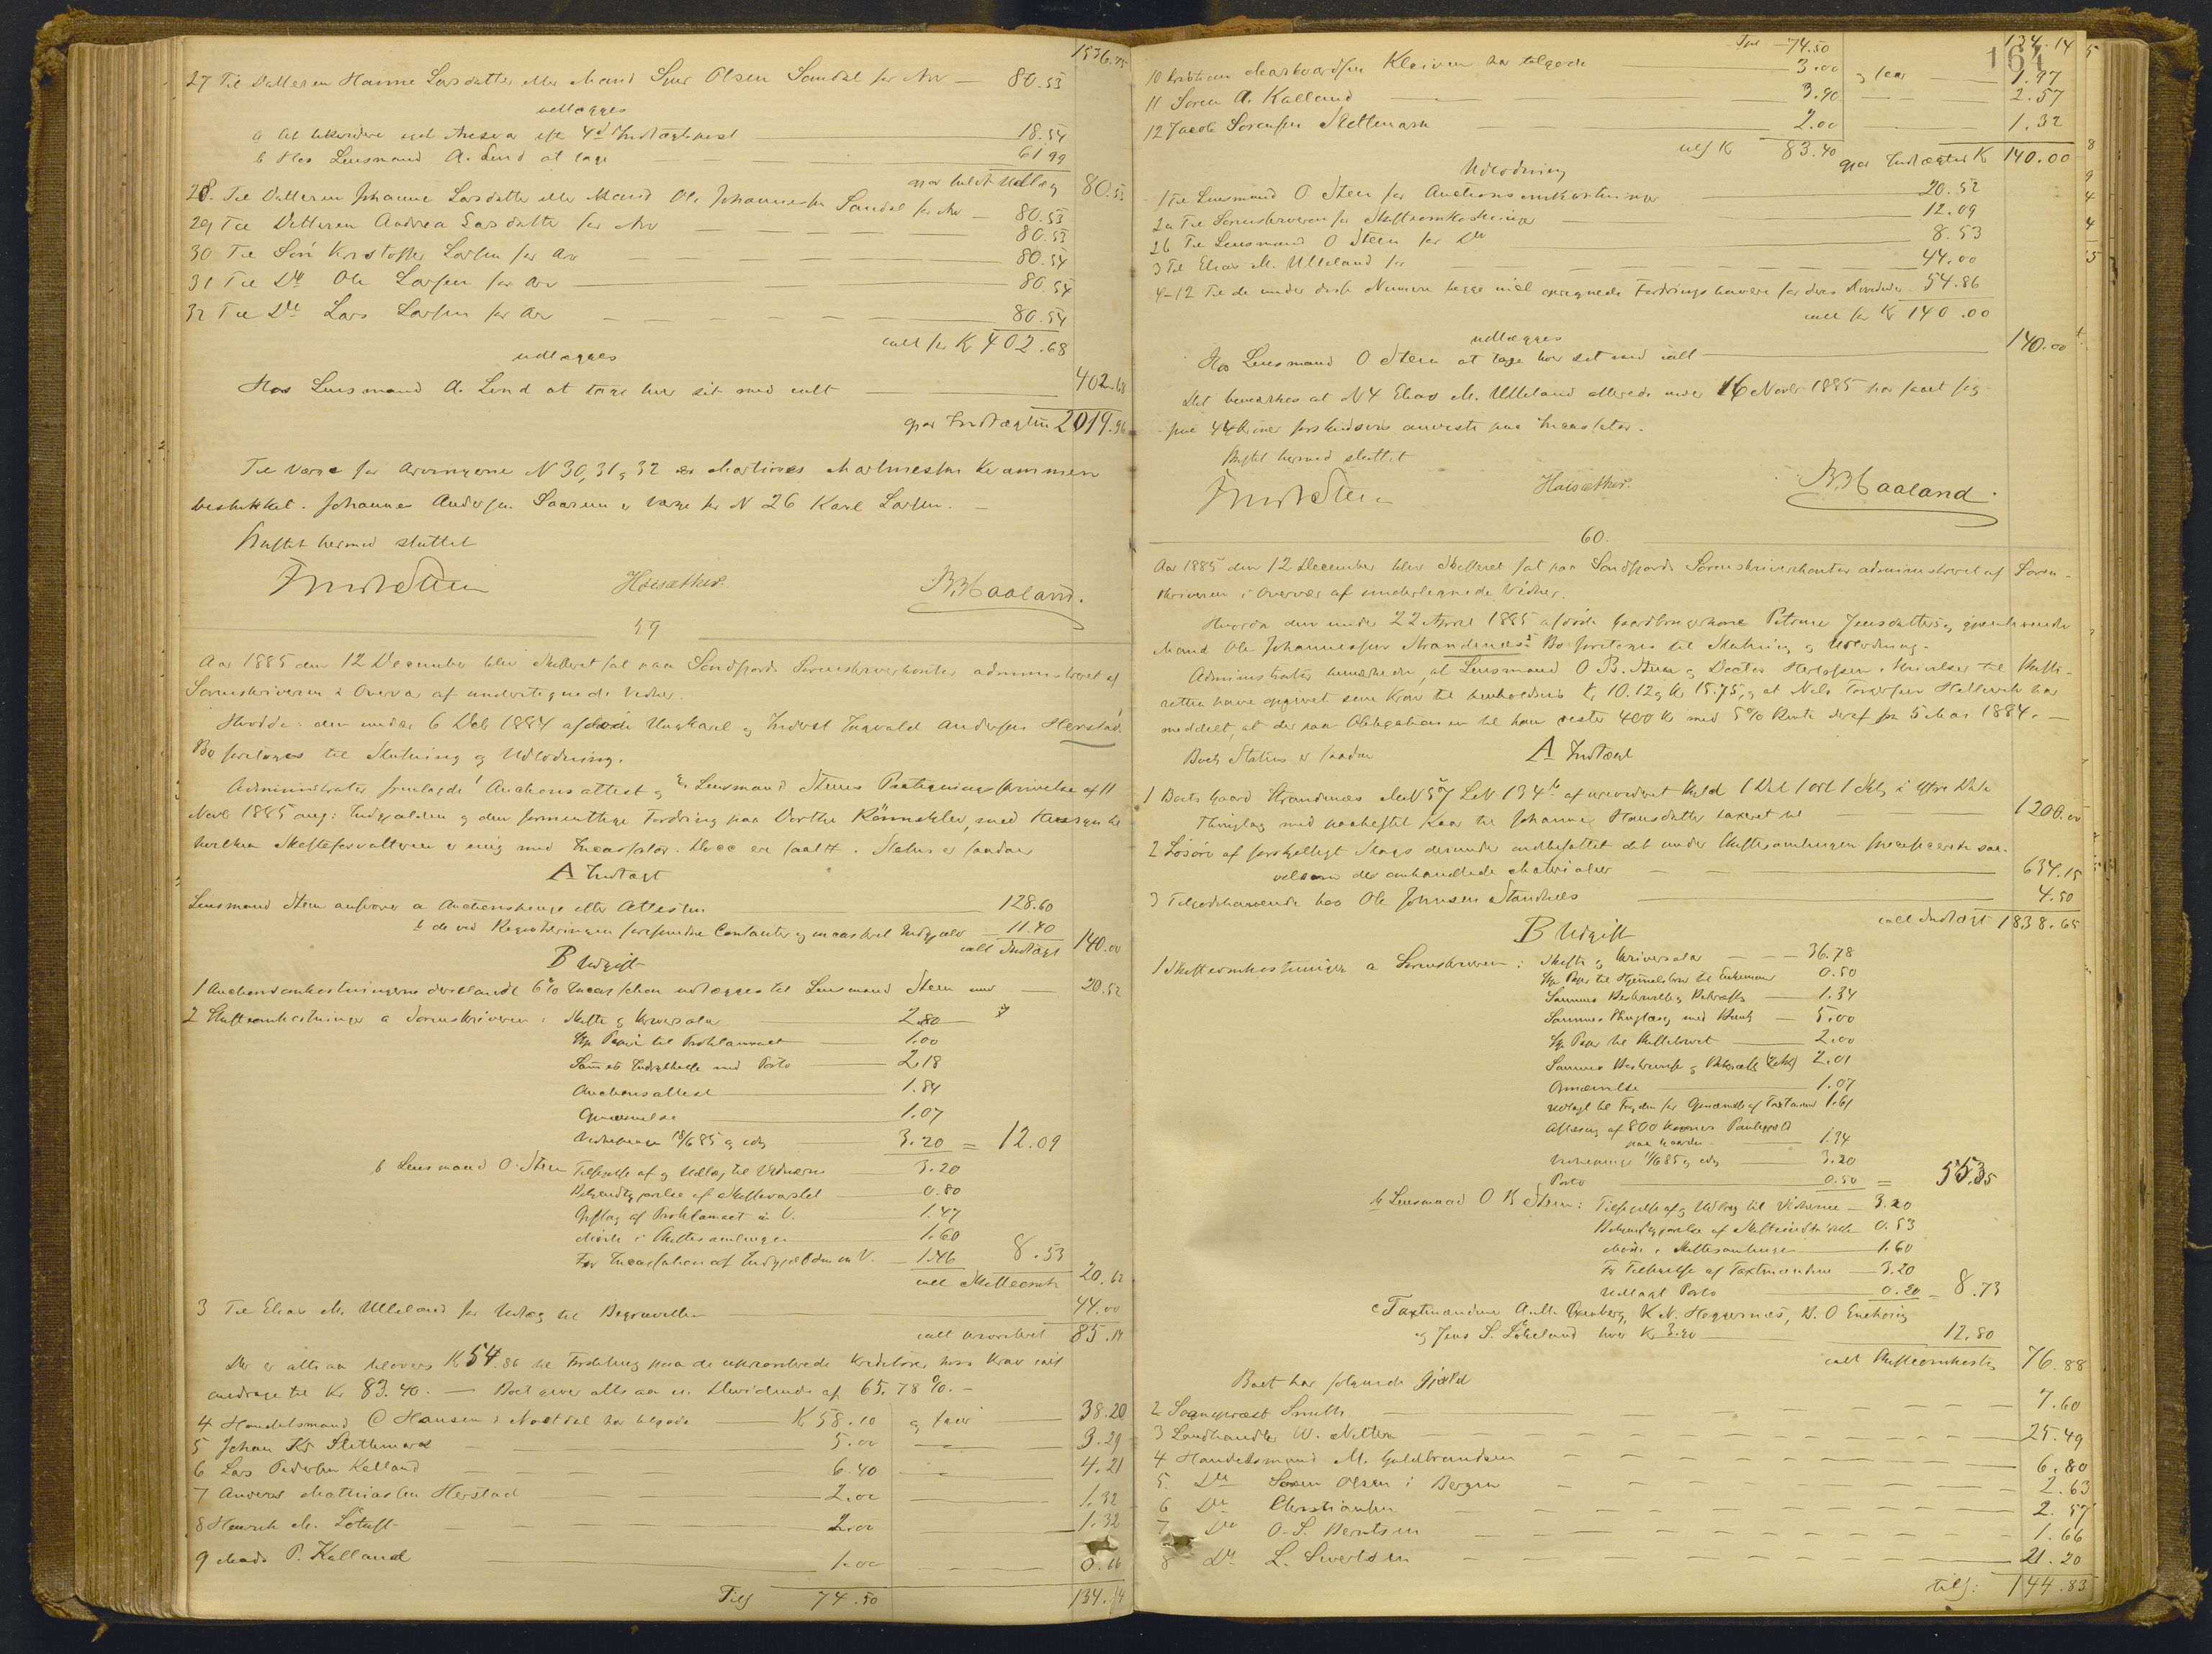 1536.75
27 Til Datteren Hanne Larsdatter eller Mand Sjur Olsen Sandal for Arv — 80.53
udlægges
a At likvidere ved Ansvar efter 4de Indtægtspost 18.54
b Hos Lensmand A. Lind at tage — — 61.99
gjør fuldt Udlæg 80.53
28. Til Datteren Johanne Larsdatter eller Mand Ole Johannessen Sandal for Arv — 80.53
29 Til Datteren Andrea Larsdatter for Arv — — — — — 80.53
30 Til Søn Kristoffer Larsen for Arv — — — — 80.54
31 Til Do Ole Larsen for Arv — 80.54
32 Til Do Lars Larsen for Arv — — — — 80.54
ialt for Kr 402.68
udlægges
Hos Lensmand A. Lind at tage hver sit med ialt — 402.68
gjør Indtægten 2019.96
Til Værge for Arvingerne N 30, 31 & 32 er Martines Martinessen Kvammen
beskikket. Johannes Andersen Saarum er Værge for N 26 Karl Larsen. —
Skiftet hermed sluttet
Hoisæther.
B. Haaland.
59
Aar 1885 den 12 December blev Skifteret sat paa Søndfjords Sorenskriverkontor administreret af
Sorenskriveren i Overvær af undertegnede Vidner.
Hvorda: den under 6 Deb 1884 afdøde Ungkarl og Inderst Ingvald Andersen Herstads
Bo foretoges til Slutning og Udlodning.
Administrator fremlagde 1 Auctionsattest og 2, Lensmand Steens Protegningsskrivelse af 11
Novb 1885 ang: Indgjælden og den formentlige Fordring paa Dorthe Rønneklev, med Hensyn til
hvilken Skifteforvalteren er enig med Incassator. Disse er saalt. Status er saadan
A Indtægt
Lensmand Steen ansvarer a Auctionspenge efter Attesten — 128.60
b de ved Registreringen forefundne Contanter og incasseret Indgjæld — 11.40
ialt Indtægt 140.00
B Udgift
1 Auctionsomkostningerne deriblandt 6% Incassation udlægges til Lensmand Steen med — 20.52
2 Skifteomkostninger a Sorenskriveren: Skifte og Skriversalær — 2.80
Stp Papir til Proklamaet — 1.00
Sammes Indrykkelse med Porto — 2.18
Auctionsattest — 1.84
Opnævnelse — 1.07
Vidnepenge 18/6 85 og idag — 3.20 = 12.09
b Lensmand O. Steen Tilsigelse af og Udlæg til Vidnerne — 3.20
Bekjendtgjørelse af Skiftevarslet — 0.80
Opslag af Proklamaet in V. — 1.47
Møde i Skiftesamlingen — 1.60
For Incassation af Indgjælden in V. — 1.46 8.53
ialt Skifteomk 20.62
3 Til Elias M. Ulleland for Udlæg til Begravelsen — 44.00
ialt prioriteret 85.14
Der er altsaa tilovers Kr 54.86 til Fordeling paa de uprioriterede Kreditorer hvis Krav ialt
andrage til Kr 83.40. — Boet giver altsaa en Dividende af 65.78 %. —
4 Handelsmand C Hansen i Naustdal har tilgode — Kr 58.10 og faar — 38.20
5 Johan Kr Slettemark — 5.00 — 3.29
6 Lars Pedersen Kalland — 6.40 — 4.21
7 Anders Mathiassen Herstad — 2.00 — 1.32
8 Henrik M. — 2.00 — 1.32
9 Mads P. Kalland — 1.00 — 0.66
Tils 74.50 134.14
Tpt 74.50 134.14
164
10 Kristian Markvardsen Kleiven har tilgode — 3.00 og faar — 1.97
11 Søren A. Kalland — 3.90 — 2.57
12 Jacob Sørensen Slettemark — 2.00 — 1.32
ialt Kr 83.40 gjør Indtægten Kr 140.00
Udlodning
1 Til Lensmand O Steen for Auctionsomkostninger — 20.52
2a Til Sorenskriveren for Skifteomkostninger — 12.09
2b Til Lensmand O Steen for Do — 8.53
3 Til Elias M. Ulleland for — 44.00
4–12 Til de under disse Numere begge incl opregnede Fordringshavere for deres Dividender 54.86
ialt for Kr 140.00
udlægges
Hos Lensmand O Steen at tage hver sit med ialt — 140.00
Det bemærkes at N 4 Elias M. Ulleland allerede under 16 Novbr 1885 har faaet sig
sine 44 Kroner forskudsvis anviste paa Incassator.
Skiftet hermed sluttet
Hoisæther.
B. Haaland.
60.
Aar 1885 den 12 December blev Skifteret sat paa Søndfjords Sorenskriverkontor administreret af Soren-
skriveren i Overvær af undertegnede Vidner.
Hvorda den under 22 April 1885 afdøde Gaardbrugerkone Petrine Jensdatters og gjenlevende
Mand Ole Johannessen Strandenæs's Bo foretoges til Slutning og Udlodning.
Administrator bemærkede, at Lensmand O B. Steen og Doctor Herlofsen i Skrivelser til Skifte-
retten have opgivet sine Krav til henholdsvis Kr 10.12 og Kr 15.75, og at Nils Torgersen Hellevik har
meddelt, at der paa Obligationen til ham rester 400 Kr med 5% Rente deraf fra 5 Mai 1884. —
Boets Status er saadan
A Indtægt
1 Boets Gaard Strandenæs MatN 57 LN 134b af urevideret Skyld 1 Dal 1 ort 1 Skl i Ytre Dale
Thinglag med paaheftet Kaar til Johanne Hansdatter taxeret til — 1200.00
2 Løsøre af forskjelligt Slags derunder indbefattet det under Skiftesamlingen specificerede saa-
velsom der omhandlede Materialier — 634.15
3 Tilgodehavende hos Ole Johnsen Standnes — 4.50
ialt Indtægt 1838.65
B Udgift
1 Skifteomkostninger a Sorenskriveren: Skifte og Skriversalær — 36.78
Stp Papir til Hjemmelsbrev til Enkemand 0.50
Sammes Beskrivelse og Bekræft. — 1.34
Sammes Thinglæsn med — 5.00
Stp Papir til Skiftebrevet — 2.00
Sammes Beskrivelse og Bekræft. 2.01
Opnævnelse — 1.07
Udlagt til Fogden for Opnævnelse af Taxtmænd 1.61
Aflæsning af 800 Kroners Panteobl
paa Gaarden — 1.34
Vidnepenge 11/6 85 og idag — 3.20
Porto — 0.50 = 55.35
b Lensmand O B Steen: Tilsigelse af og Udlæg til Vidnerne — 3.20
Bekjendtgjørelse af — 0.53
Møde i Skiftesamlingen — 1.60
For Tilsigelse af Taxtmændene — 3.20
Udlagt Porto — 0.20 = 8.73
c Taxtmændene A. M. Ovenberg, K N. Heggernæs, B. O Enehøug
og Jens S. Løkeland hver Kr 3.20 — 12.80
ialt Skifteomkostn 76.88
Boet har følgende Gjæld
2 Sogneprest Smith — 7.60
3 Landhandler W. Nitter — 25.49
4 Handelsmand M. Guldbrandsen — 6.80
5. Do Søren Olsen i Bergen — 2.63
6 Do Christiansen — 2.57
7 Do O. S. Berntsen — 1.66
8 Do L. Sivertsen — 21.20
tils: 144.83